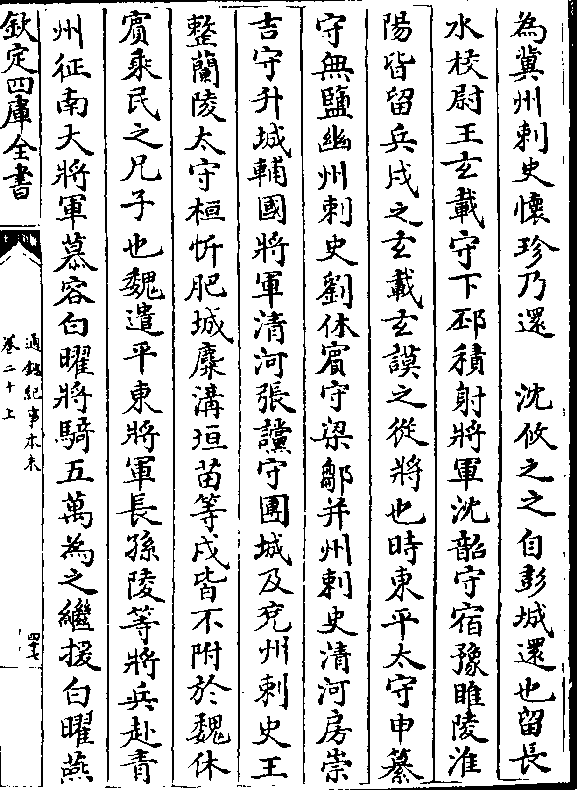 為冀州刺史懷珍乃還　沈攸之之自彭城還也留長
水校尉王玄載守下邳積射將軍沈韶守宿豫睢陵淮
陽皆留兵戍之玄載玄謨之從將也時東平太守申纂
守無鹽幽州刺史劉休賓守梁鄒并州刺史清河房崇
吉守升城輔國將軍清河張讜守團城及兗州刺史王
整蘭陵太守桓忻肥城糜溝垣苗等戍皆不附於魏休
賓乘民之兄子也魏遣平東將軍長孫陵等將兵赴青
州征南大將軍慕容白曜將騎五萬為之繼援白曜燕
欽定四庫全書
通鑑紀事本末
卷二十上
四十七